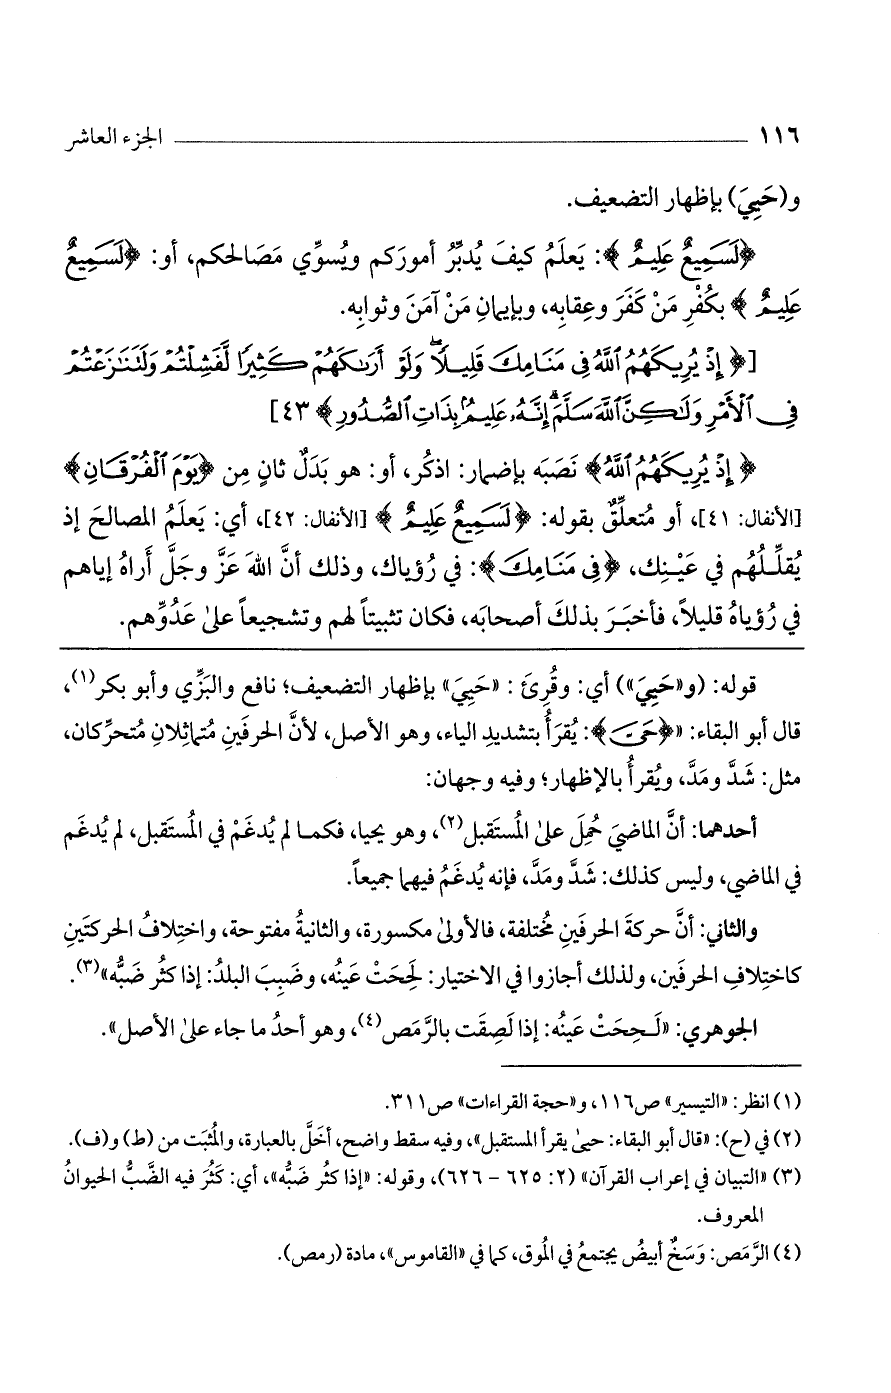 ١١٦ الجزء العاشر
و(حَيِيَ) بإظهار التضعيف.
﴿لَسَمِيعٌ عَلِيمٌ﴾: يَعلَمُ كيفَ يُدبِّرُ أمورَكم ويُسوِّي مَصَالحكم، أو: ﴿لَسَمِيعٌ
عَلِيمٌ﴾ بكُفْرِ مَنْ كَفَرَ وعِقابِه، وبإيمانِ مَنْ آمَنَ وثوابِه.
[﴿إِذْ يُرِيكَهُمُ ٱللَّهُ فِى مَنَامِكَ قَلِيلًا ۖ وَلَوْ أَرَىٰكَهُمْ كَثِيرًا لَّفَشِلْتُمْ وَلَتَنَـٰزَعْتُمْ
فِى ٱلْأَمْرِ وَلَـٰكِنَّ ٱللَّهَ سَلَّمَ ۗ إِنَّهُۥ عَلِيمٌۢ بِذَاتِ ٱلصُّدُورِ﴾ ٤٣]
﴿إِذْ يُرِيكَهُمُ ٱللَّهُ﴾ نَصَبَه بإضمار: اذكُر، أو: هو بَدَلٌ ثانٍ مِن ﴿يَوْمَ ٱلْفُرْقَانِ﴾
[الأنفال: ٤١]، أو مُتعلِّقٌ بقوله: ﴿لَسَمِيعٌ عَلِيمٌ﴾ [الأنفال: ٤٢]، أي: يَعلَمُ المصالحَ إذ
يُقلِّلُهُم في عَيْنِك، ﴿فِى مَنَامِكَ﴾: في رُؤياك، وذلك أنَّ اللهَ عَزَّ وجَلَّ أَراهُ إياهم
في رُؤياهُ قليلاً، فأخبَرَ بذلكَ أصحابَه، فكان تثبيتاً لهم وتشجيعاً علىٰ عَدُوِّهم.
قوله: (و«حَيِيَ») أي: وقُرِئَ: «حَيِيَ» بإظهار التضعيف؛ نافع والبَزِّي وأبو بكر(١)،
قال أبو البقاء: «﴿حَىَّ﴾: يُقرَأُ بتشديدِ الياء، وهو الأصل، لأنَّ الحرفَينِ مُتماثلانِ مُتحرِّكان،
مثل: شَدَّ ومَدَّ، ويُقرأُ بالإظهار؛ وفيه وجهان:
أحدهما: أنَّ الماضيَ حُمِلَ علىٰ المُستَقبل(٢)، وهو يحيا، فكما لم يُدغَمْ في المُستَقبل، لم يُدغَم
في الماضي، وليس كذلك: شَدَّ ومَدَّ، فإنه يُدغَمُ فيهما جميعاً.
والثاني: أنَّ حركةَ الحرفَينِ مُختلفة، فالأولىٰ مكسورة، والثانيةُ مفتوحة، واختِلافُ الحركتَينِ
كاختِلافِ الحرفَين، ولذلك أجازوا في الاختيار: لَحِحَتْ عَينُه، وضَبِبَ البلدُ: إذا كثُر ضَبُّه»(٣).
الجوهري: «لَـحِحَتْ عَينُه: إذا لَصِقَت بالرَّمَص(٤)، وهو أحدُ ما جاء علىٰ الأصل».
(١) انظر: «التيسير» ص١١٦، و«حجة القراءات» ص٣١١.
(٢) في (ح): «قال أبو البقاء: حيىٰ يقرأ المستقبل»، وفيه سقط واضح، أخَلَّ بالعبارة، والمُثبَت من (ط) و(ف).
(٣) «التبيان في إعراب القرآن» (٢: ٦٢٥ - ٦٢٦)، وقوله: «إذا كثُر ضَبُّه»، أي: كَثُرَ فيه الضَّبُّ الحيوانُ
المعروف.
(٤) الرَّمَص: وَسَخٌ أبيضُ يجتمعُ في المُوق، كما في «القاموس»، مادة (رمص).